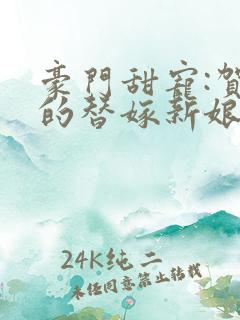 豪門甜寵:賀
的替嫁新娘
24K纯二
未经同意禁止转载